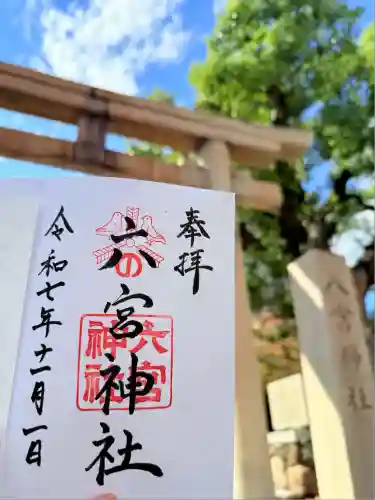 奉拝
六の宮神社
六宮
神社
令和七年十一月一日
八宮神社